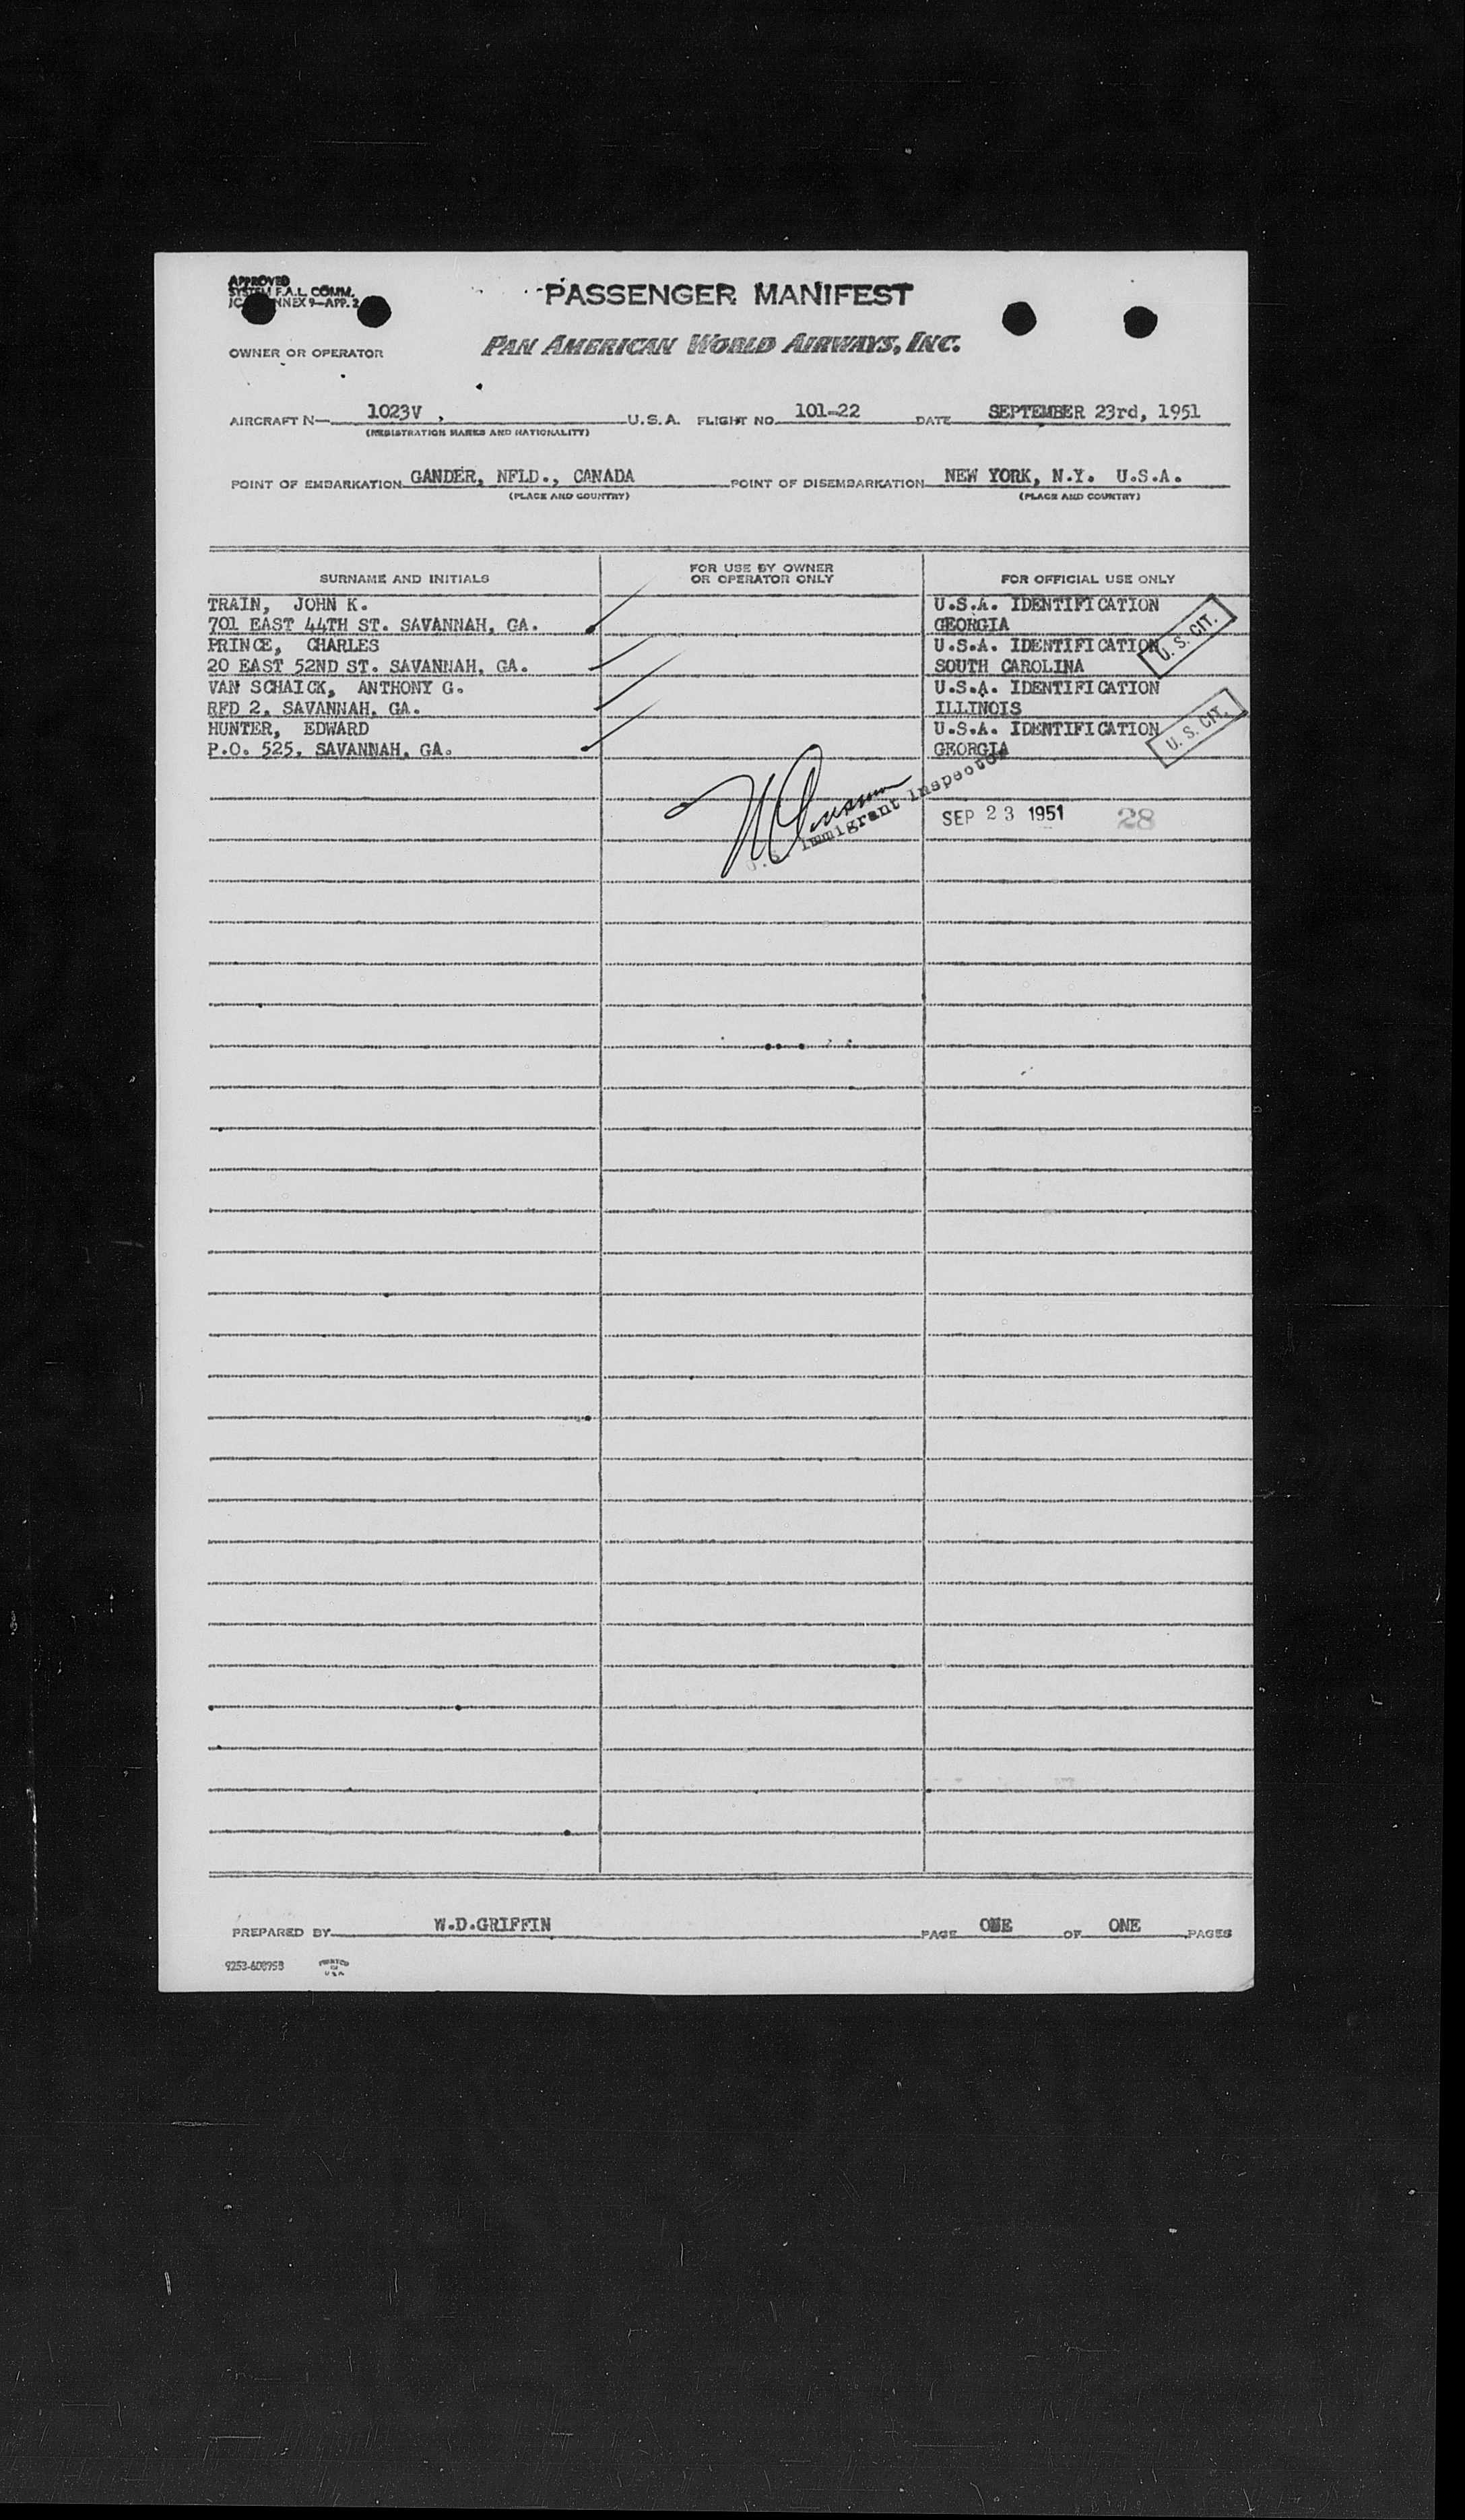 APPROVED
SYSTEM F.A.L. COMM.
NNEX 9—APP. 2
PASSENGER MANIFEST
OWNER OR OPERATOR PAN AMERICAN WORLD AIRWAYS, INC.
AIRCRAFT N— 1023V , U.S.A. FLIGHT NO. 101-22 DATE SEPTEMBER 23rd, 1951
(REGISTRATION MARKS AND NATIONALITY)
POINT OF EMBARKATION GANDER, NFLD., CANADA POINT OF DISEMBARKATION NEW YORK, N.Y. U.S.A.
(PLACE AND COUNTRY) (PLACE AND COUNTRY)
SURNAME AND INITIALS FOR USE BY OWNER OR OPERATOR ONLY FOR OFFICIAL USE ONLY
TRAIN, JOHN K. U.S.A. IDENTIFICATION
701 EAST 44TH ST. SAVANNAH, GA. GEORGIA
U. S. CIT.
PRINCE, CHARLES U.S.A. IDENTIFICATION
20 EAST 52ND ST. SAVANNAH, GA. SOUTH CAROLINA
VAN SCHAICK, ANTHONY G. U.S.A. IDENTIFICATION
RFD 2, SAVANNAH, GA. ILLINOIS
U. S. CIT.
HUNTER, EDWARD U.S.A. IDENTIFICATION
P.O. 525, SAVANNAH, GA. GEORGIA
Immigrant Inspector
SEP 23 1951 28
PREPARED BY W.D.GRIFFIN PAGE ONE OF ONE PAGES
PRINTED
IN
U S A